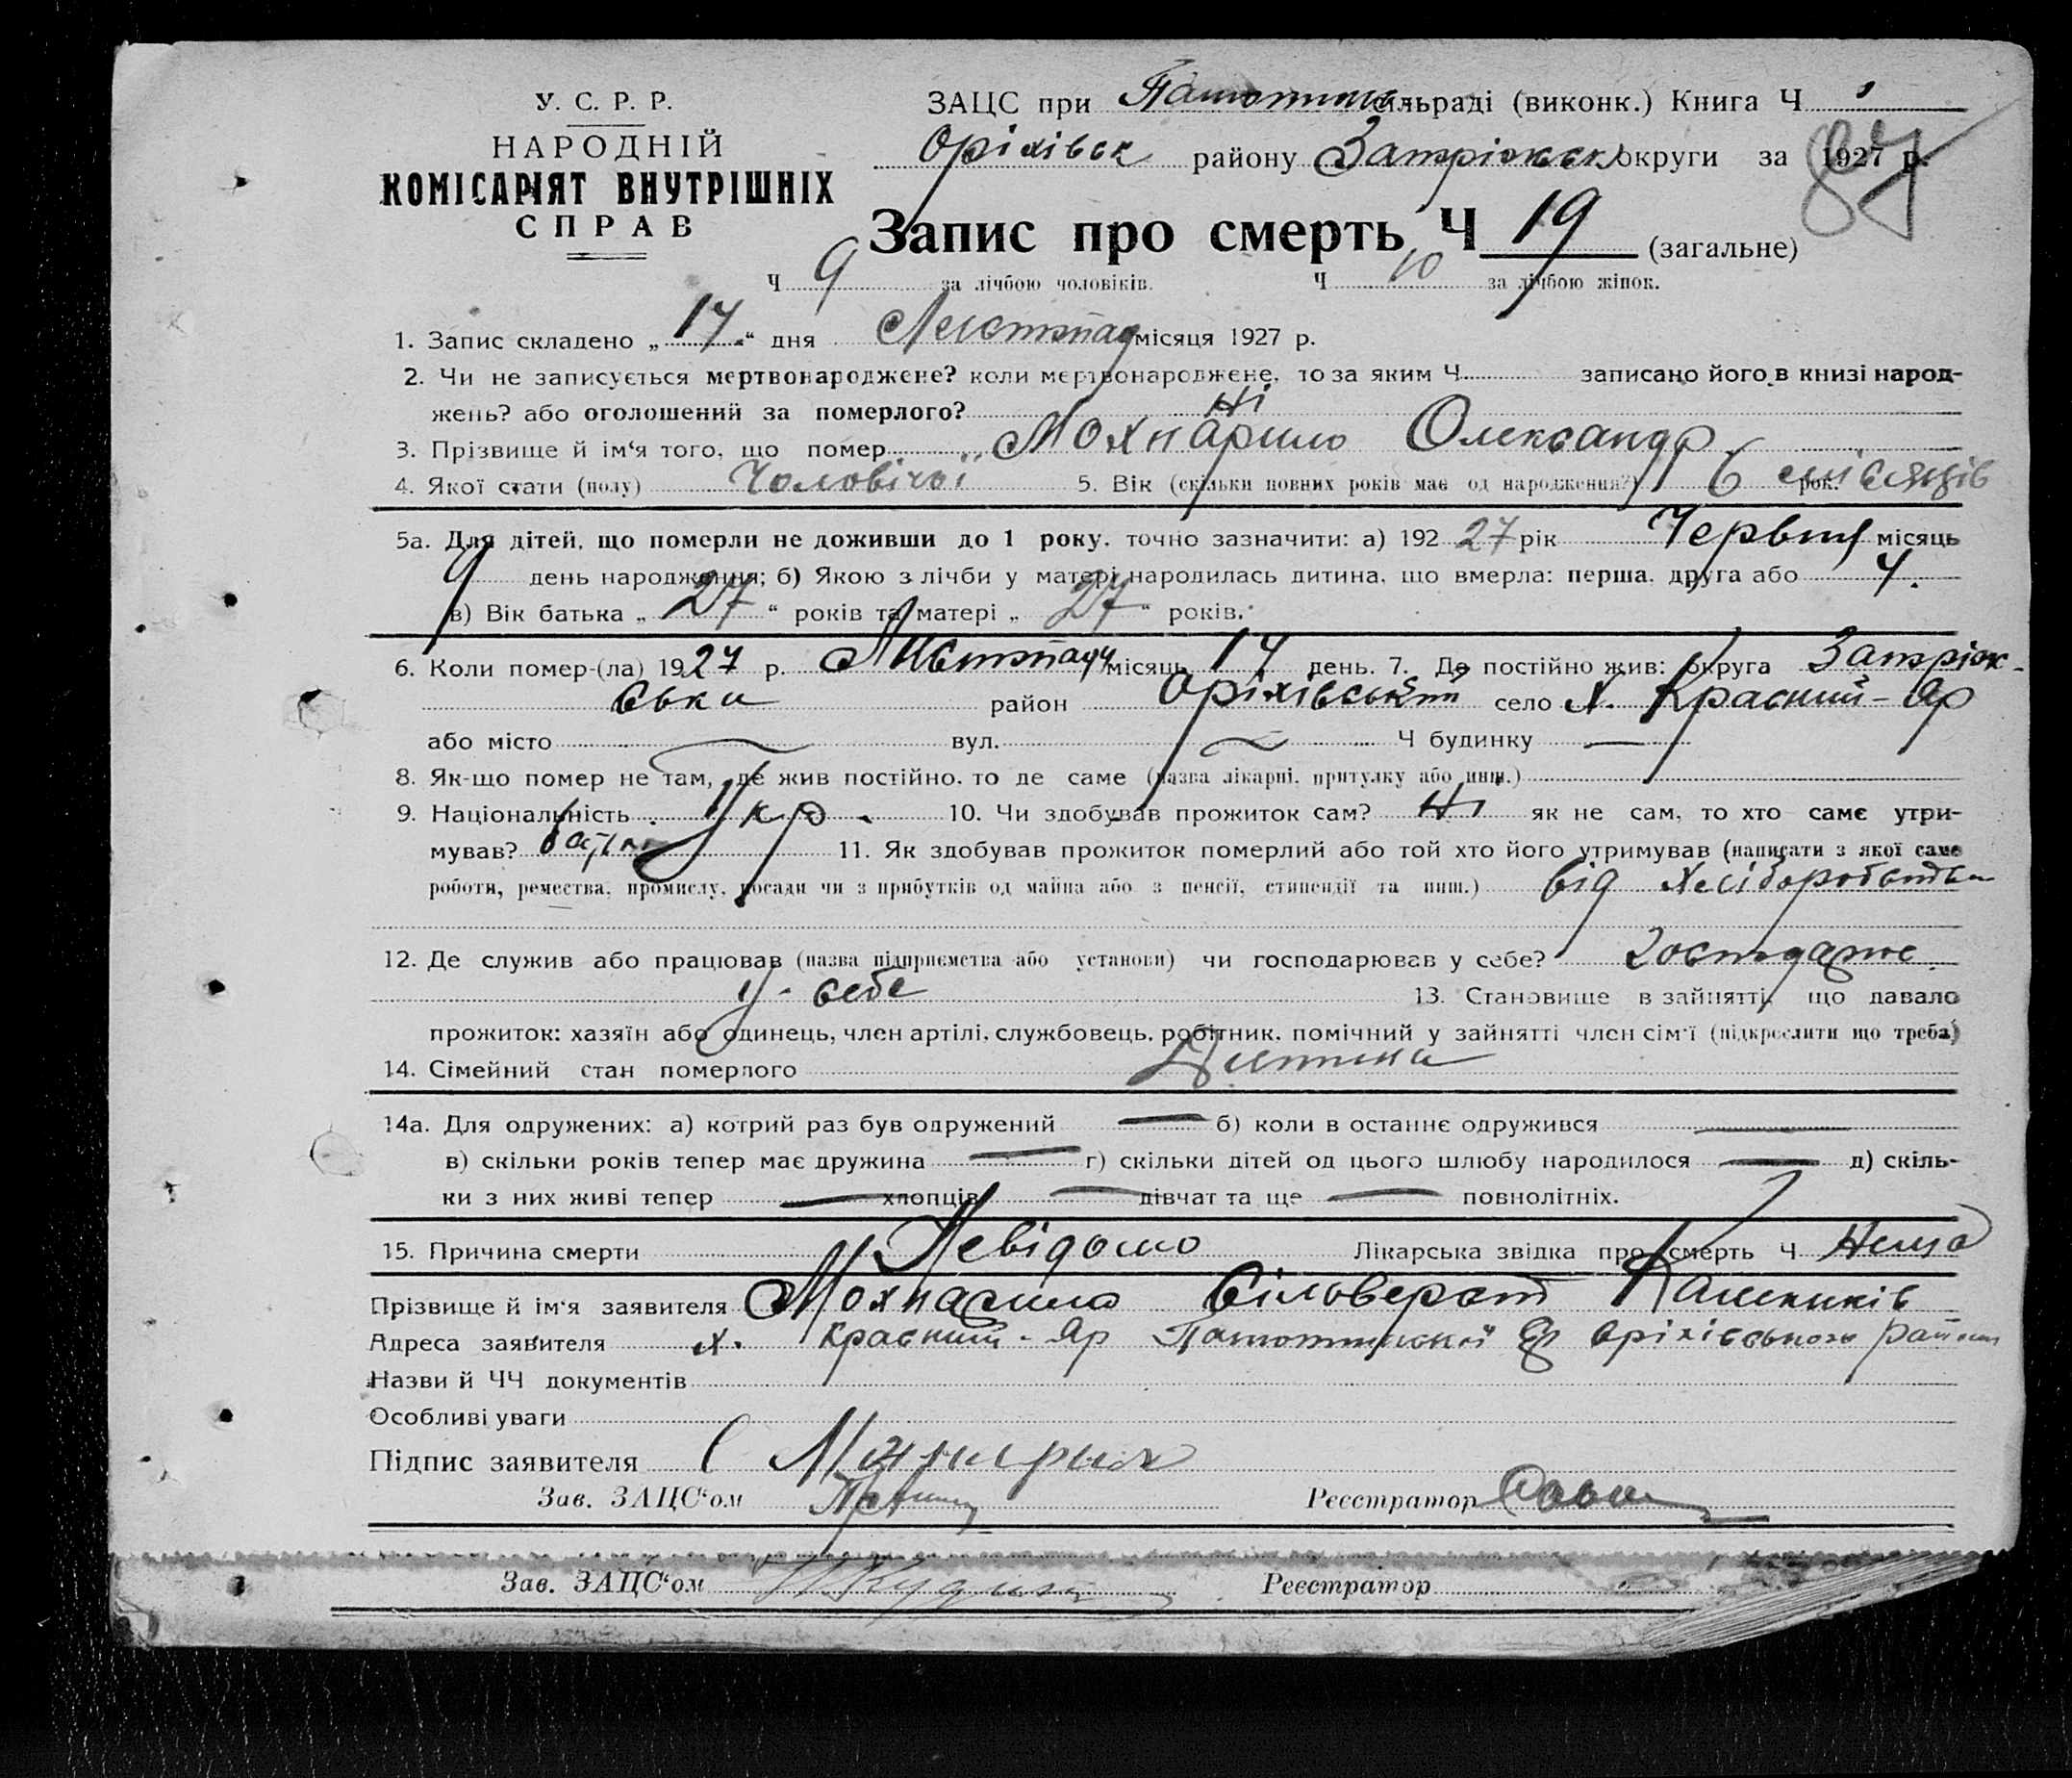 У. С. Р. Р.
НАРОДНІЙ
КОМІСАРІЯТ ВНУТРІШНІХ
СПРАВ
ЗАЦС при сільраді (виконк.) Книга Ч
Оріхівськ району Запріжськ округи за 1927 р.
87
Запис про смерть Ч 19 (загальне)
Ч 9 за лічбою чоловіків. Ч 10 за лічбою жінок.
1. Запис складено „ 17 “ дня Листопад місяця 1927 р.
2. Чи не записується мертвонароджене? коли мертвонароджене, то за яким Ч записано його в книзі народ-
жень? або оголошений за померлого? Ні
3. Прізвище й ім‘я того, що помер Олександр
4. Якої стати (полу) Чоловічої 5. Вік (скільки повних років має од народження?) 6 рок. місяців
5а. Для дітей, що померли не доживши до 1 року, точно зазначити: а) 192 27 рік Червня місяць
9 день народження; б) Якою з лічби у матері народилась дитина, що вмерла: перша, друга або 4.
в) Вік батька „ 27 “ років та матері „ 27 “ років.
6. Коли помер-(ла) 1927 р. Листопаду місяць 17 день. 7. Де постійно жив: округа Запріж-
ська район Оріхівський село Х. Красний-Яр
або місто вул. Ч будинку —
8. Як-що помер не там, де жив постійно, то де саме (назва лікарні, притулку або инш.)
9. Національність Укр. 10. Чи здобував прожиток сам? Ні як не сам, то хто саме утри-
мував? 11. Як здобував прожиток померлий або той хто його утримував (написати з якої саме
роботи, ремества, промислу, посади чи з прибутків од майна або з пенсії, стипендії та инш.) від хліборобства
12. Де служив або працював (назва підприємства або установи) чи господарював у себе?
у себе 13. Становище в зайнятті, що давало
прожиток: хазяїн або одинець, член артілі, службовець, робітник, помічний у зайнятті член сім‘ї (підкреслити що треба)
14. Сімейний стан померлого Дитина
14а. Для одружених: а) котрий раз був одружений — б) коли в останнє одружився —
в) скільки років тепер має дружина — г) скільки дітей од цього шлюбу народилося — д) скіль-
ки з них живі тепер — хлопців — дівчат та ще — повнолітніх.
15. Причина смерти Невідомо Лікарська звідка про смерть Ч Нема
Прізвище й ім‘я заявителя
Адреса заявителя х. Красний-Яр Оріхівського району
Назви й ЧЧ документів
Особливі уваги
Підпис заявителя
Зав. ЗАЦС‘ом Реєстратор
Зав. ЗАЦС‘ом Реєстратор